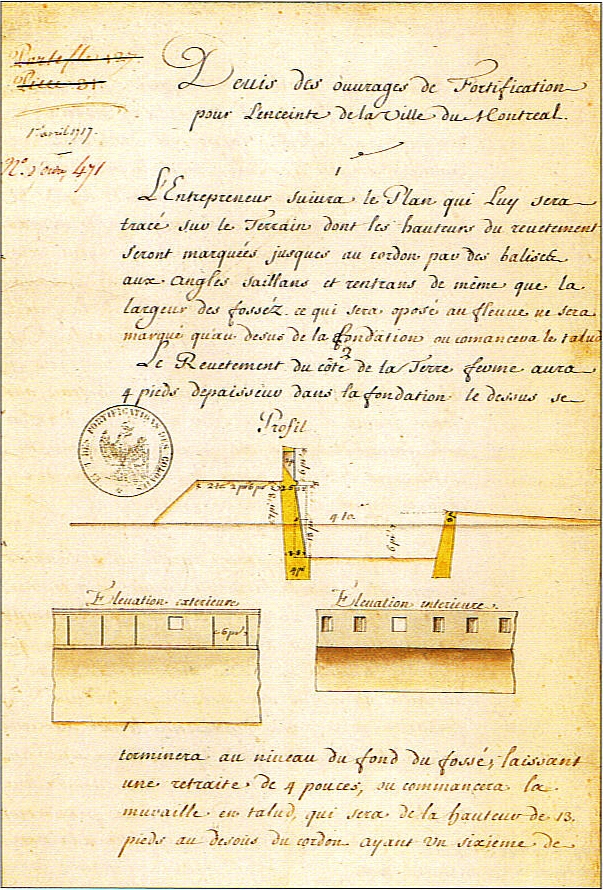 Portefle 127.
Piece 31.
1er avril 1717.
No. d'ordre, 471
Devis des ouvrages de Fortification
pour L'enceinte de la Ville du Montreal.
1
L'Entrepreneur suivra le Plan qui Luy sera
tracé sur le Terrain dont les hauteurs du revetement
seront marquées jusques au cordon par des balises
aux angles saillans et rentrans de même que la
largeur des fosséz. ce qui sera oposé au fleuve ne sera
marqué qu'au desus de la fondation ou comancera le talud
2
Le Revetement du côté de la Terre ferme aura
4 pieds depaisseur dans la fondation le dessus se
DES FORTIFICATIONS DES COLONIES
Profil
4 ta
4 pi
Elevation exterieure
6 pi
Elevation interieure.
terminera au niveau du fond du fossé, laissant
une retraite de 4 pouces, ou commancera la
muraille en talud, qui sera de la hauteur de 13.
pieds au desous du cordon ayant un sixieme de